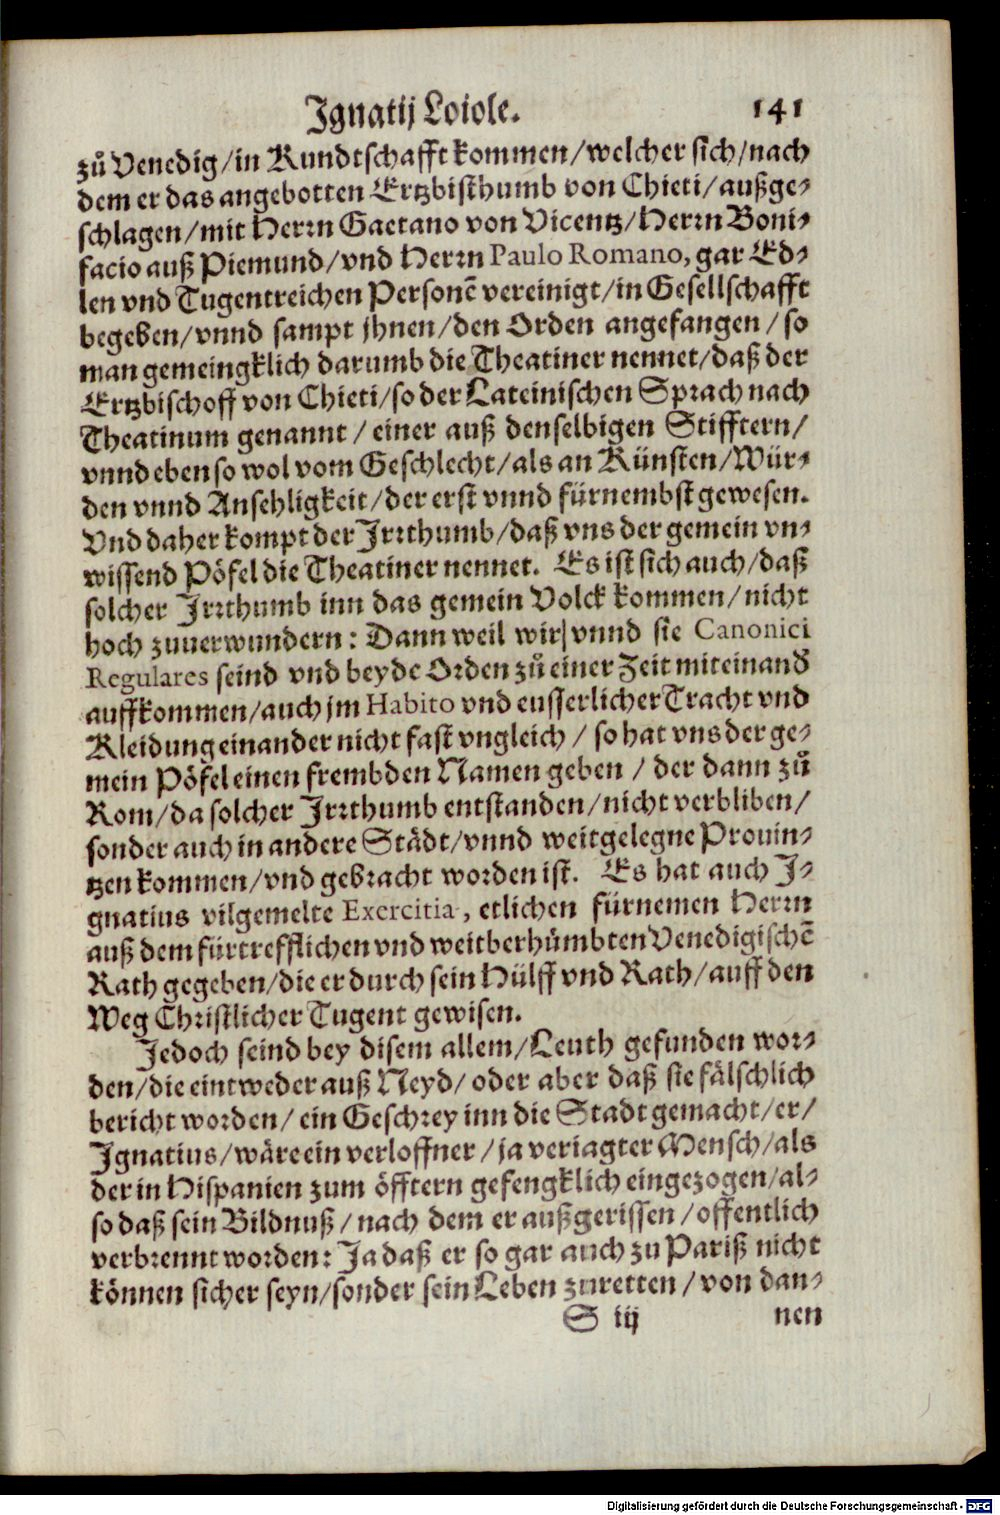 Ignatij Loiole. 141
zů Venedig/in Kundtschafft kommen/welcher sich/nach
dem er das angebotten Ertzbisthumb von Chieti/außge-
schlagen/mit Herrn Gaetano von Vicentz/Herrn Boni-
facio auß Piemund/vnd Herrn Paulo Romano, gar Ed-
len vnd Tugentreichen Personē vereinigt/in Gesellschafft
begeben/vnnd sampt jhnen/den Orden angefangen/so
man gemeingklich darumb die Theatiner nennet/daß der
Ertzbischoff von Chieti/so der Lateinischen Sprach nach
Theatinum genannt/einer auß denselbigen Stifftern/
vnnd eben so wol vom Geschlecht/als an Künsten/Wür-
den vnnd Ansehligkeit/der erst vnnd fürnembst gewesen.
Vnd daher kompt der Irrthumb/daß vns der gemein vn-
wissend Pöfel die Theatiner nennet. Es ist sich auch/daß
solcher Irrthumb inn das gemein Volck kommen/nicht
hoch zuuerwundern: Dann weil wir/vnnd sie Canonici
Regulares seind vnd beyde Orden zů einer Zeit miteinand
auffkommen/auch jm Habito vnd eusserlicher Tracht vnd
Kleidung einander nicht fast vngleich/so hat vns der ge-
mein Pöfel einen frembden Namen geben/der dann zů
Rom/da solcher Irrthumb entstanden/nicht verbliben/
sonder auch in andere Städt/vnnd weitgelegne Prouin-
tzen kommen/vnd gebracht worden ist. Es hat auch I-
gnatius vilgemelte Exercitia, etlichen fürnemen Herrn
auß dem fürtrefflichen vnd weitberhůmbten Venedigischē
Rath gegeben/die er durch sein Hülff vnd Rath/auff den
Weg Christlicher Tugent gewisen.
Jedoch seind bey disem allem/Leuth gefunden wor-
den/die eintweder auß Neyd/oder aber daß sie fälschlich
bericht worden/ein Geschrey inn die Stadt gemacht/er/
Ignatius/wäre ein verloffner/ja veriagter Mensch/als
der in Hispanien zum öfftern gefengklich eingezogen/al-
so daß sein Bildnuß/nach dem er außgerissen/offentlich
verbrennt worden: Ja daß er so gar auch zu Pariß nicht
können sicher seyn/sonder sein Leben zuretten/von dan-
S iij nen
Digitalisierung gefördert durch die Deutsche Forschungsgemeinschaft - DFG